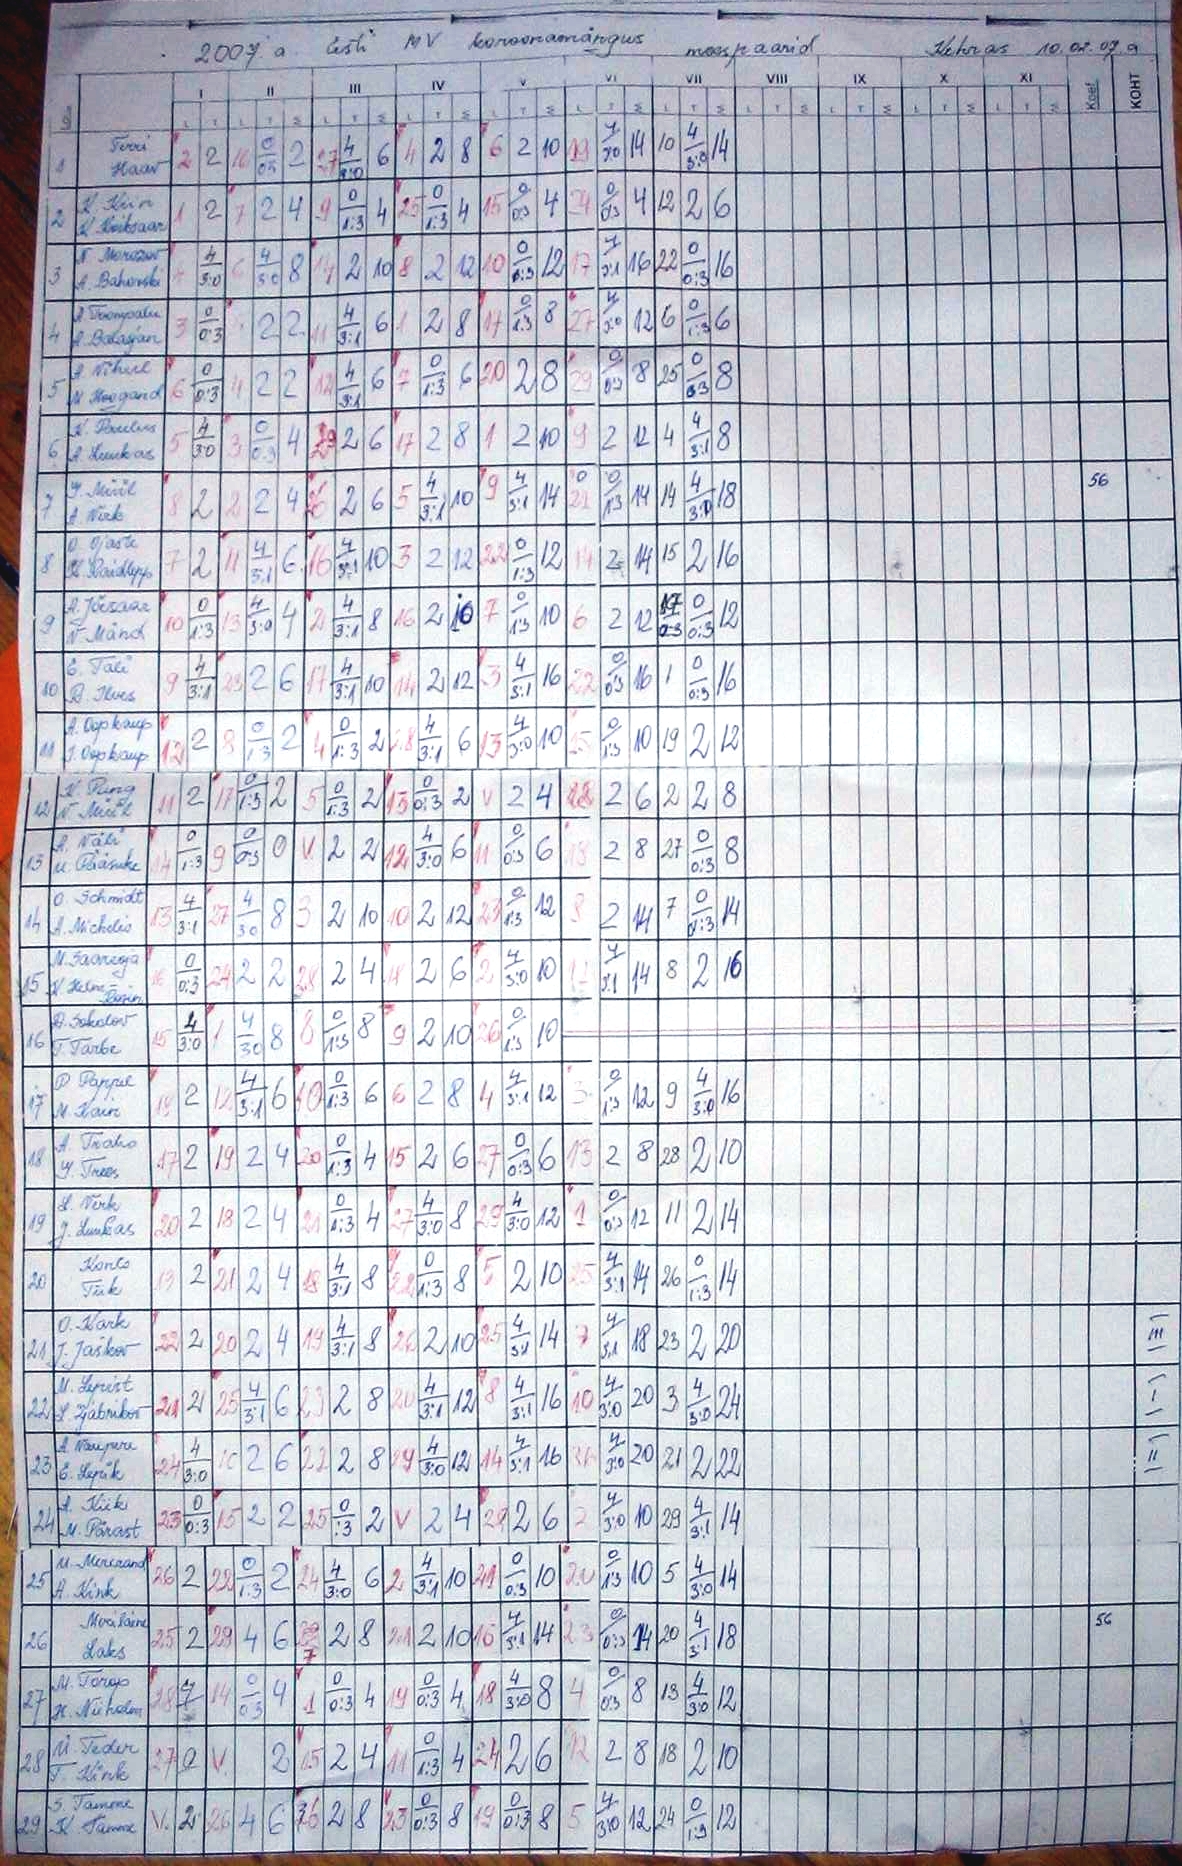 2007.a. Eesti MV koroonamängus meespaarid Kehras 10.02.07.a
I II III IV V VI VII VIII IX X XI Koef. КОНТ
1 Terri Haav 2 2 16 0 0:3 2 27 4 3:0 6 4 2 8 6 2 10 19 4 3:0 14 10 4 3:0 14
2 K. Kiin 1 2 7 2 4 9 0 1:3 4 25 0 1:3 4 15 0 0:3 4 24 0 0:3 4 12 2 6
3 N. Morozov A. Bahovski 4 4 3:0 6 4 3:0 8 14 2 10 8 2 12 10 0 0:3 12 17 4 3:1 16 22 0 0:3 16
4 A. Balasjan 3 0 0:3 5 2 2 11 4 3:1 6 1 2 8 17 0 1:3 8 27 4 3:0 12 6 0 1:3 6
5 A. Nihul M. Hoogand 6 0 0:3 4 2 2 12 4 3:1 6 7 0 1:3 6 20 2 8 29 0 0:3 8 25 0 0:3 8
6 K. Paulus A. Lunkas 5 4 3:0 3 0 0:3 4 29 2 6 17 2 8 1 2 10 9 2 12 4 4 3:1 8
7 Y. Müül A. Virk 8 2 2 2 4 26 2 6 5 4 3:1 10 9 4 3:1 14 21 0 1:3 14 14 4 3:0 18 56
8 O. Ojaste 7 2 11 4 3:1 6 16 4 3:1 10 3 2 12 22 0 1:3 12 14 2 14 15 2 16
9 A. Jõesaar V. Mänd 10 0 1:3 13 4 3:0 4 2 4 3:1 8 16 2 10 7 0 1:3 10 6 2 12 17 0:3 0 0:3 12
10 E. Tali A. Ilves 9 4 3:1 23 2 6 17 4 3:1 10 14 2 12 3 4 3:1 16 22 0 0:3 16 1 0 0:3 16
11 A. Oopkaup J. Oopkaup 12 2 8 0 1:3 2 4 0 1:3 2 28 4 3:1 6 13 4 3:0 10 15 0 1:3 10 19 2 12
12 K. Pung V. Müül 11 2 17 0 1:3 2 5 0 1:3 2 13 0 0:3 2 V 2 4 28 2 6 2 2 8
13 A. Näli U. Pääsuke 14 0 1:3 9 0 0:3 0 V 2 2 12 4 3:0 6 11 0 0:3 6 18 2 8 27 0 0:3 8
14 O. Schmidt A. Michelis 13 4 3:1 27 4 3:0 8 3 2 10 10 2 12 23 0 1:3 12 8 2 14 7 0 0:3 14
15 M. Saareoja 16 0 0:3 24 2 2 28 2 4 18 2 6 2 4 3:0 10 11 4 3:1 14 8 2 16
16 D. Sokolov T. Tarbe 15 4 3:0 1 4 3:0 8 8 0 1:3 8 9 2 10 26 0 1:3 10
17 P. Pappel M. Kain 18 2 12 4 3:1 6 10 0 1:3 6 6 2 8 4 4 3:1 12 3 0 1:3 12 9 4 3:0 16
18 A. Traho Y. Trees 17 2 19 2 4 20 0 1:3 4 15 2 6 27 0 0:3 6 13 2 8 28 2 10
19 L. Virk J. Lunkas 20 2 18 2 4 21 0 1:3 4 27 4 3:0 8 29 4 3:0 12 1 0 0:3 12 11 2 14
20 Konts Türk 19 2 21 2 4 18 4 3:1 8 22 0 1:3 8 5 2 10 25 4 3:1 14 26 0 1:3 14
21 O. Kark J. Jaškov 22 2 20 2 4 19 4 3:1 8 26 2 10 25 4 3:1 14 7 4 3:1 18 23 2 20 III
22 M. Leprist 21 2 25 4 3:1 6 23 2 8 20 4 3:1 12 8 4 3:1 16 10 4 3:0 20 3 4 3:0 24 I
23 A. Naupere E. Lepik 24 4 3:0 10 2 6 22 2 8 29 4 3:0 12 14 4 3:1 16 26 4 3:0 20 21 2 22 II
24 A. Kiik M. Pärast 23 0 0:3 15 2 2 25 0 :3 2 V 2 4 28 2 6 2 4 3:0 10 29 4 3:1 14
25 U. Merirand A. Kink 26 2 22 0 1:3 2 24 4 3:0 6 2 4 3:1 10 21 0 0:3 10 20 0 1:3 10 5 4 3:0 14
26 Meriläine Laks 25 2 29 4 6 7 2 8 21 2 10 16 4 3:1 14 23 0 0:3 14 20 4 3:1 18 56
27 M. Torop 28 4 14 0 0:3 4 1 0 0:3 4 19 0 0:3 4 18 4 3:0 8 4 0 0:3 8 13 4 3:0 12
28 M. Teder T. Kink 27 0 V. 2 15 2 4 11 0 1:3 4 24 2 6 12 2 8 18 2 10
29 S. Tamme K. Tamme V. 2 26 4 6 6 2 8 23 0 0:3 8 19 0 0:3 8 5 4 3:0 12 24 0 1:3 12